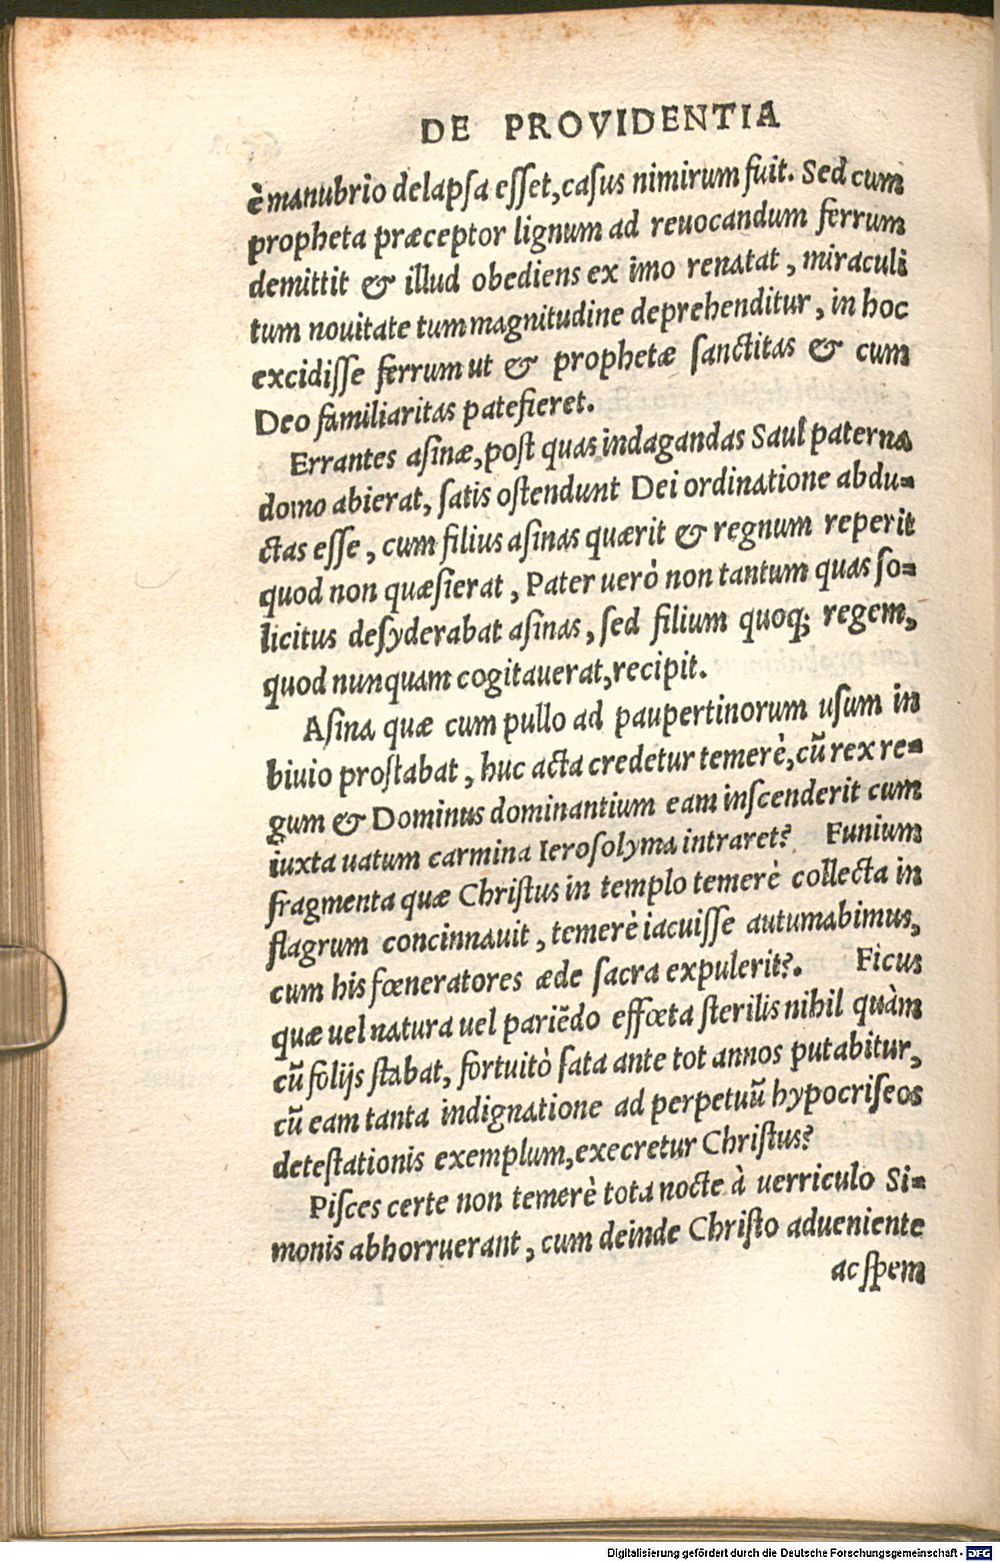 DE PROVIDENTIA
è manubrio delapſa eſſet, caſus nimirum fuit. Sed cum
propheta præceptor lignum ad reuocandum ferrum
demittit & illud obediens ex imo renatat, miraculi
tum nouitate tum magnitudine deprehenditur, in hoc
excidiſſe ferrum ut & prophetæ ſanctitas & cum
Deo familiaritas patefieret.
Errantes aſinæ, poſt quas indagandas Saul paterna
domo abierat, ſatis oſtendunt Dei ordinatione abdu⸗
ctas eſſe, cum filius aſinas quærit & regnum reperit
quod non quæſierat, Pater uerò non tantum quas ſo⸗
licitus deſyderabat aſinas, ſed filium quoq; regem,
quod nunquam cogitauerat, recipit.
Aſina quæ cum pullo ad paupertinorum uſum in
biuio proſtabat, huc acta credetur temerè, cū rex re⸗
gum & Dominus dominantium eam inſcenderit cum
iuxta uatum carmina Ieroſolyma intraret? Funium
fragmenta quæ Chriſtus in templo temerè collecta in
flagrum concinnauit, temerè iacuiſſe autumabimus,
cum his fœneratores æde ſacra expulerit?. Ficus
quæ uel natura uel pariēdo effœta ſterilis nihil quàm
cū folijs ſtabat, fortuitò ſata ante tot annos putabitur,
cū eam tanta indignatione ad perpetuū hypocriſeos
deteſtationis exemplum, execretur Chriſtus?
Piſces certe non temerè tota nocte à uerriculo Si⸗
monis abhorruerant, cum deinde Chriſto adueniente
ac ſpem
Digitalisierung gefördert durch die Deutsche Forschungsgemeinschaft - DFG